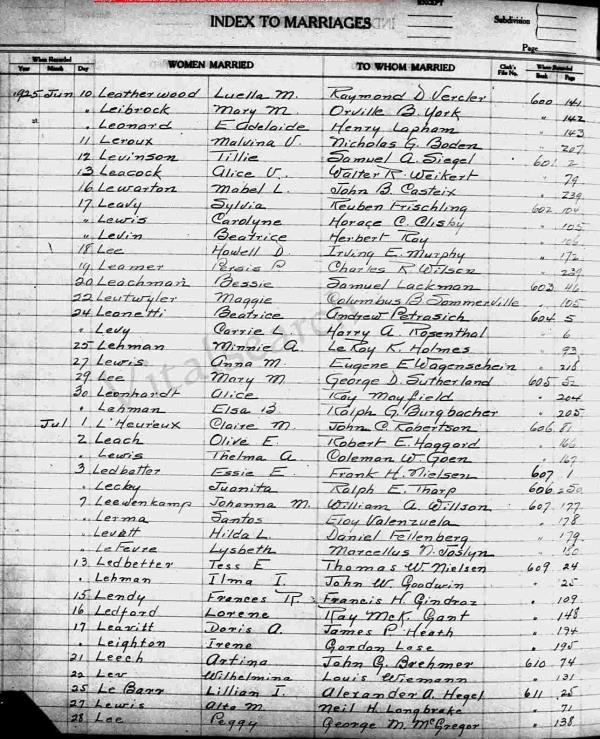 INDEX TO MARRIAGES
EXCEPT
Subdivision
Page
When Recorded WOMEN MARRIED TO WHOM MARRIED Clerk's File No. When Recorded
Year Month Day Book Page
1925 Jun 10 Leatherwood Luella M. Raymond D. Vercler 600 141
" Leibrock Mary M. Orville B. York " 142
" Leonard E Adelaide Henry Lapham " 143
11 Leroux Malvina V. Nicholas G. Boden " 207
12 Levinson Tillie Samuel A. Siegel 601 2
13 Leacock Alice V. Walter R. Weikert " 79
16 Lewarton Mabel L. John B. Casteix " 239
17 Leavy Sylvia Reuben Frischling 602 104
" Lewis Carolyne Horace C. Clisby " 105
" Levin Beatrice Herbert Roy " 106
18 Lee Howell D. Irving E. Murphy " 172
19 Leamer Persis P. Charles R Wilson " 239
20 Leachman Bessie Samuel Lackman 603 46
22 Leutwyler Maggie Columbus B Sommerville " 105
24 Leonetti Beatrice Andrew Petrasich 604 5
" Levy Carrie L Harry A. Rosenthal " 6
25 Lehman Minnie A. Le Roy K. Holmes " 93
27 Lewis Anna M. Eugene E Wagenschein " 218
29 Lee Mary M George D. Sutherland 605 52
30 Leonhardt Alice Ray Mayfield " 204
" Lehman Elsa B. Ralph G. Burgbacher " 205
Jul 1 L'Heureux Claire M. John C. Robertson 606 81
2 Leach Olive E. Robert E. Haggard " 166
" Lewis Thelma A. Coleman W. Goen " 167
3 Ledbetter Essie E. Frank H. Nielsen 607 1
" Lecky Juanita Ralph E. Tharp 606 250
7 Leewenkamp Johanna M. William A. Willson 607 177
" Lerma Santos Eloy Valenzuela " 178
" Levett Hilda L. Daniel Fellenberg " 179
" Le Fevre Lysbeth Marcellus N. Joslyn " 180
13 Ledbetter Tess E Thomas W. Nielsen 609 24
" Lehman Ilma I. John W. Goodwin " 25
15 Lendy Frances R. Francis H. Gindroz " 109
16 Ledford Lorene Ray McK. Gant " 148
17 Leavitt Doris A. James P. Heath " 194
" Leighton Irene Gordon Lose " 195
21 Leech Artina John G. Brehmer 610 74
22 Lev Wilhelmina Louis Wiemann " 131
25 Le Barr Lillian I. Alexander A. Hegel 611 25
27 Lewis Alta M. Neil H. Longbrake " 71
28 Lee Peggy George M. McGregor " 138